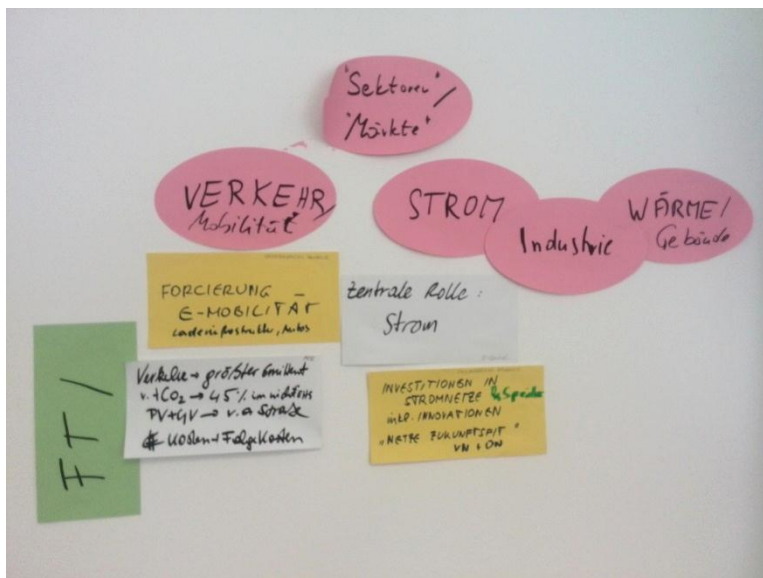 "Sektoren"/
"Märkte"
VERKEHR/
Mobilität
STROM
Industrie
WÄRME/
Gebäude
FORCIERUNG
E-MOBILITÄT
Ladeinfrastruktur, Autos
Zentrale Rolle:
Strom
FT/
Verkehr → größter Emittent
v. tCO₂ → 45% im nicht EHS
PV+GV → v.a Straße
Kosten + Folgekosten
INVESTITIONEN IN
STROMNETZE & Speicher
inkl. INNOVATIONEN
"NETZE ZUKUNFTSFIT"